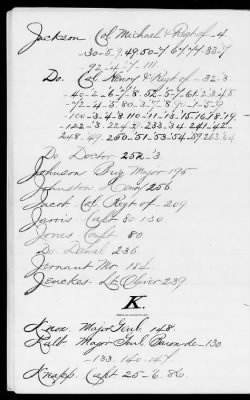 Jackson Col Michael & Regt of - 4.
-30-5.9.49.50-7 67 77 83-7
-92-4-7-111
Do. Col Henry & Regt of - 32-3
-100-3-4-8 110-11-13-15.16.18.19.
-122-3. 224.2-233.34 241-42-
248.49. 250-51-53.54-59 263.64
Do. Doctor 252-3
Johnson Brig Major 195
Johnston Henry 256
Jacob Col Regt of - 209
Jarvis Capt 8-130.
Jones Capt 80.
Do. Daniel 236
Jernant Mr. 184
Jenckes. Lt. Oliver 239.
K.
Knox. Major Genl. 148.
Kalb Major Genl Baron de - 130
-133. 140. 147.
Knapp. Capt 25-6. 86.